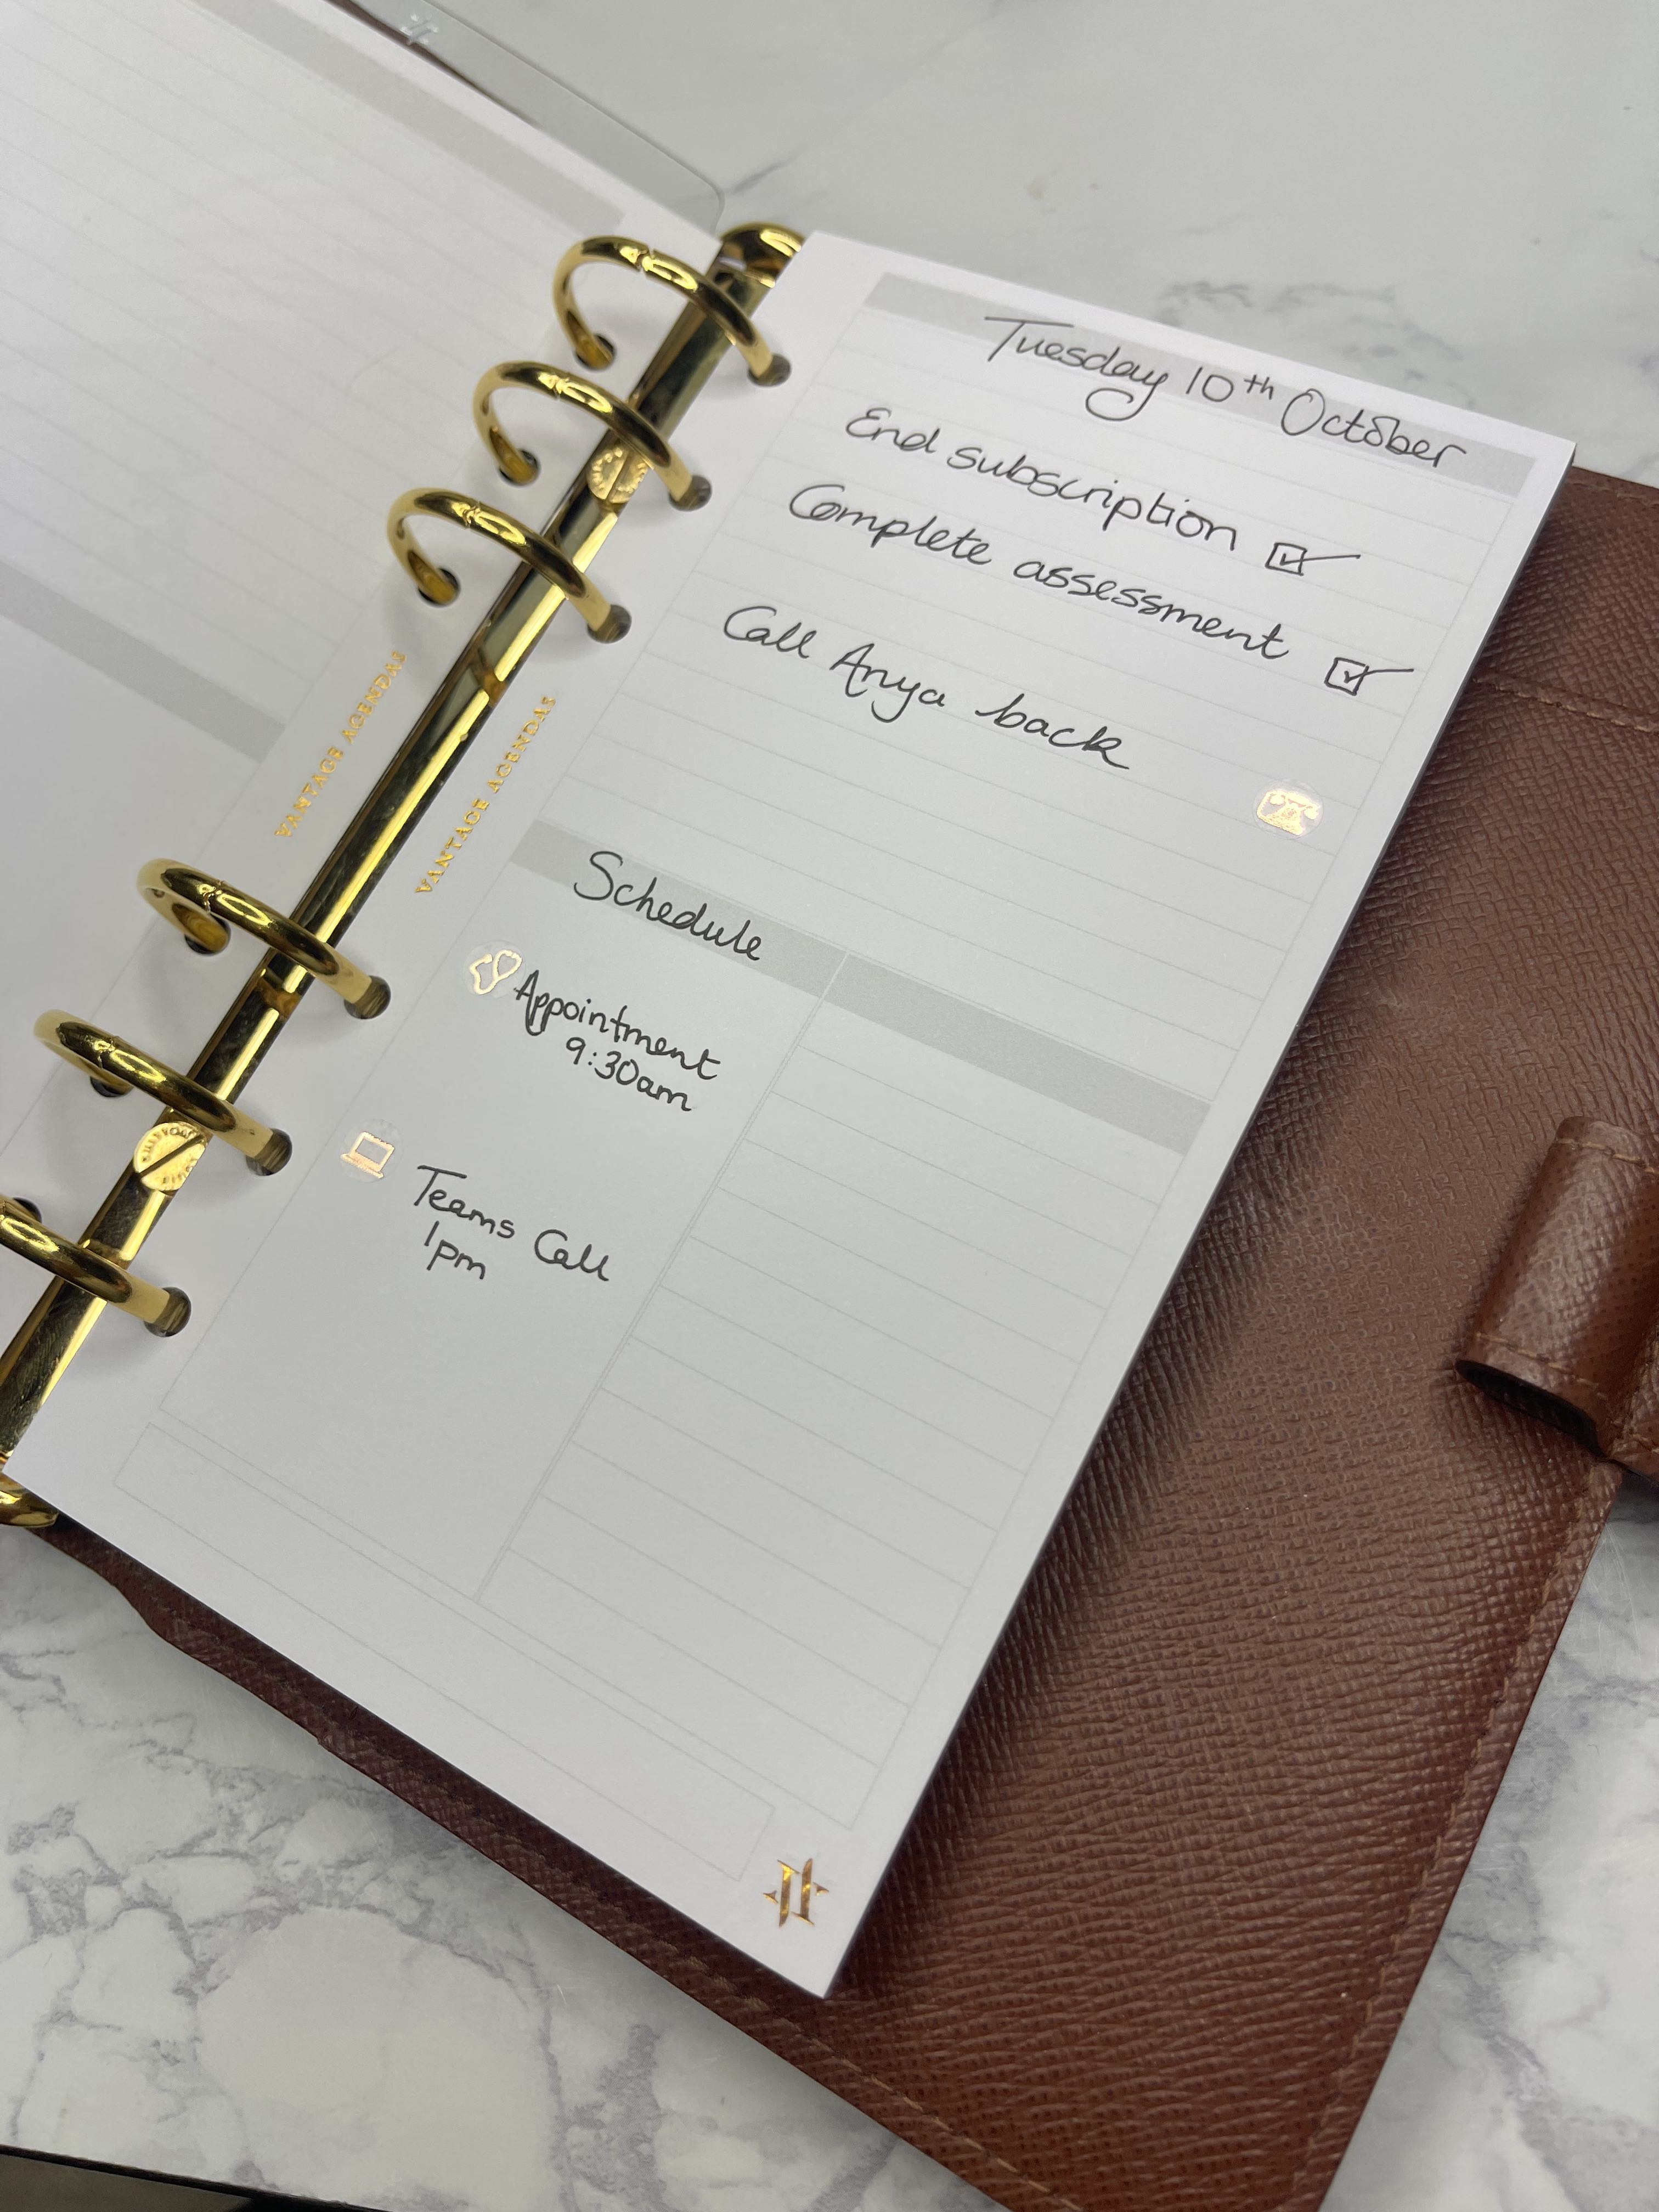 Tuesday 10th October
End subscription
Complete assessment
Call Anya back
Schedule
Appointment
9:30am
Teams Call
1pm
VANTAGE AGENDAS
VANTAGE AGENDAS